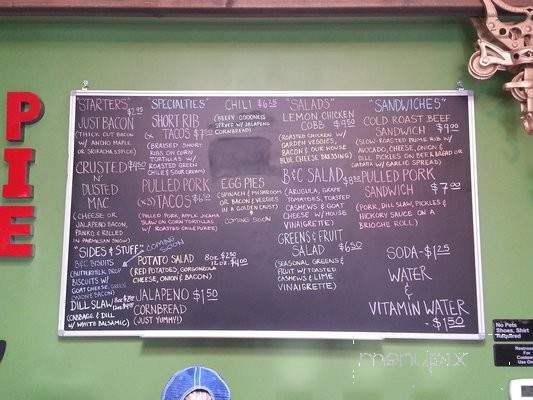 PIE
"STARTERS"
$2.95
JUST BACON
(THICK CUT BACON
W/ ANCHO MAPLE
OR SRIRACHA SPICE)
CRUSTED $4.95
N'
DUSTED
MAC
(CHEESE OR
JALAPENO BACON,
PANKO & ROLLED
IN PARMESAN SNOW)
"SIDES & STUFF"
B&C BISCUITS
(BUTTERMILK DROP
BISCUITS W/
GOAT CHEESE, GREEN
ONION & BACON)
DILL SLAW
(CABBAGE & DILL
W/ WHITE BALSAMIC)
"SPECIALTIES"
SHORT RIB
TACOS $7.50
(BRAISED SHORT
RIBS ON CORN
TORTILLAS W/
ROASTED GREEN
CHILE & SOUR CREAM)
PULLED PORK
(x3) TACOS $6.50
(PULLED PORK, APPLE JICAMA
SLAW ON CORN TORTILLAS
W/ ROASTED CHILE PUREE)
COMING
SOON
POTATO SALAD 8oz $2.50
12oz $4.00
(RED POTATOES, GORGONZOLA
CHEESE, ONION & BACON)
JALAPENO $1.50
CORNBREAD
(JUST YUMMY!)
CHILI $6.25
(BEEFY GOODNESS
SERVED W/ JALAPENO
CORNBREAD)
EGG PIES
(SPINACH & MUSHROOM
OR BACON & VEGGIES
IN A GOLDEN CRUST)
COMING SOON
"SALADS"
LEMON CHICKEN
COBB $9.50
(ROASTED CHICKEN W/
GARDEN VEGGIES,
BACON & OUR HOUSE
BLUE CHEESE DRESSING)
B&C SALAD
(ARUGULA, GRAPE
TOMATOES, TOASTED
CASHEWS & GOAT
CHEESE W/ HOUSE
VINAIGRETTE)
GREENS & FRUIT
SALAD $6.50
(SEASONAL GREENS &
FRUIT W/ TOASTED
CASHEWS & LIME
VINAIGRETTE)
"SANDWICHES"
COLD ROAST BEEF
SANDWICH $9.00
(SLOW ROASTED PRIME RIB W/
AVOCADO, CHEESE, ONION &
DILL PICKLES ON BEER BREAD OR
W/ GARLIC SPREAD)
PULLED PORK
SANDWICH $7.00
(PORK, DILL SLAW, PICKLES &
HICKORY SAUCE ON A
BRIOCHE ROLL)
SODA - $1.25
WATER
&
VITAMIN WATER
- $1.50
No Pets
Shoes, Shirt
Required
Restrooms
For
Customer
Use Only
menupix